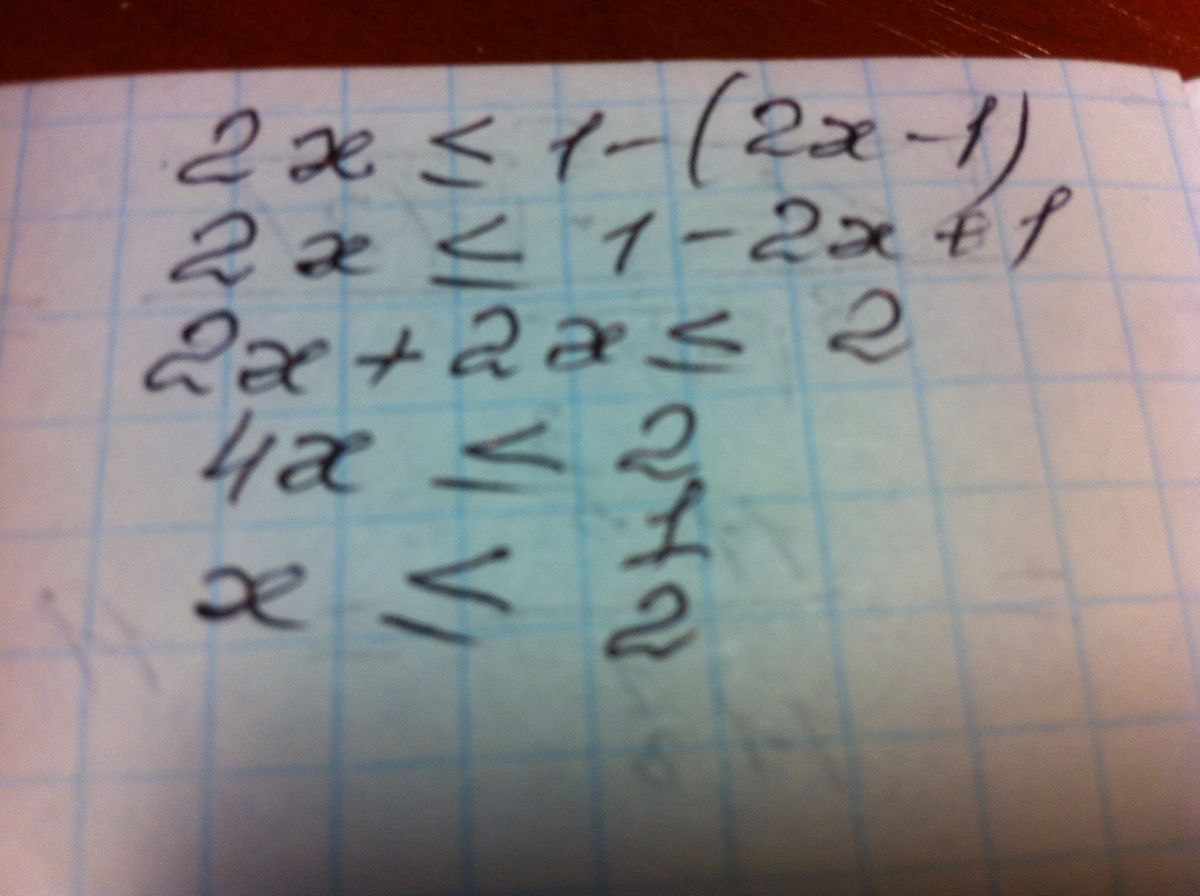 2x ≤ 1 - (2x - 1)
2x ≤ 1 - 2x + 1
2x + 2x ≤ 2
4x ≤ 2
x ≤ 1/2